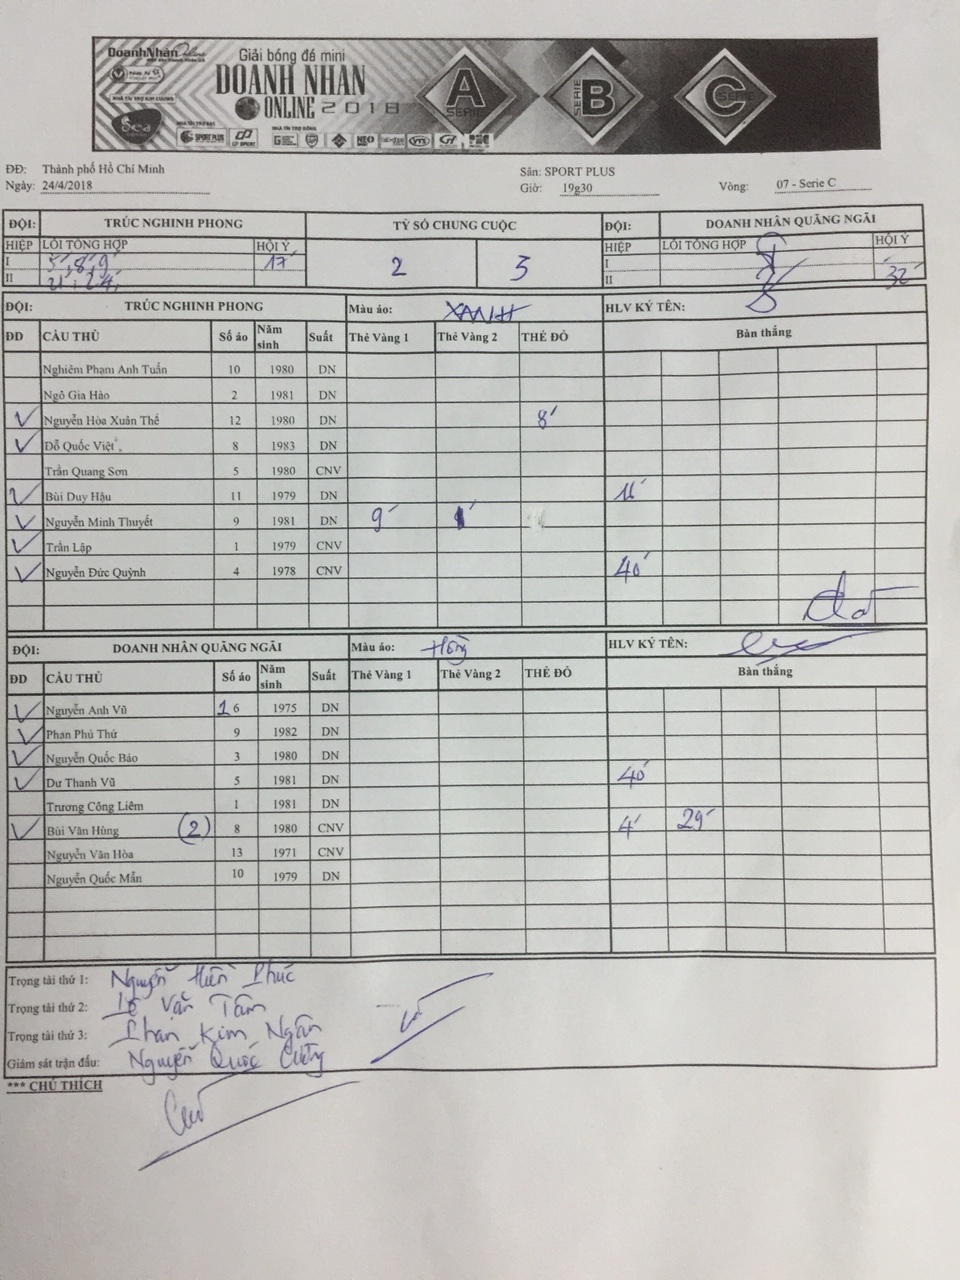 DoanhNhânOnline
Giải bóng đá mini
DOANH NHAN
ONLINE 2018
A SERIE
B SERIE
C SERIE
NHÀ TÀI TRỢ KIM CƯƠNG
Sea
NHÀ TÀI TRỢ BẠC
SPORT PLUS
CP SPORT
NHÀ TÀI TRỢ ĐỒNG
NEO
VTS
GT
ĐĐ: Thành phố Hồ Chí Minh
Sân: SPORT PLUS
Ngày: 24/4/2018
Giờ: 19g30
Vòng: 07 - Serie C
ĐỘI: TRÚC NGHINH PHONG TỶ SỐ CHUNG CUỘC ĐỘI: DOANH NHÂN QUẢNG NGÃI
HIỆP LỖI TỔNG HỢP HỘI Ý 2 3 HIỆP LỖI TỔNG HỢP HỘI Ý
I 5', 8', 9' 17' I
II 21', 24' II 32'
ĐỘI: TRÚC NGHINH PHONG Màu áo: XANH HLV KÝ TÊN:
ĐD CẦU THỦ Số áo Năm sinh Suất Thẻ Vàng 1 Thẻ Vàng 2 THẺ ĐỎ Bàn thắng
Nghiêm Phạm Anh Tuấn 10 1980 DN
Ngô Gia Hào 2 1981 DN
Nguyễn Hòa Xuân Thế 12 1980 DN 8'
Đỗ Quốc Việt 8 1983 DN
Trần Quang Sơn 5 1980 CNV
Bùi Duy Hậu 11 1979 DN 11'
Nguyễn Minh Thuyết 9 1981 DN 9'
Trần Lập 1 1979 CNV
Nguyễn Đức Quỳnh 4 1978 CNV 40'
ĐỘI: DOANH NHÂN QUẢNG NGÃI Màu áo: Hồng HLV KÝ TÊN:
ĐD CẦU THỦ Số áo Năm sinh Suất Thẻ Vàng 1 Thẻ Vàng 2 THẺ ĐỎ Bàn thắng
Nguyễn Anh Vũ 16 1975 DN
Phan Phú Thứ 9 1982 DN
Nguyễn Quốc Bảo 3 1980 DN
Dư Thanh Vũ 5 1981 DN 40'
Trương Công Liêm 1 1981 DN
Bùi Văn Hùng (2) 8 1980 CNV 4' 29'
Nguyễn Văn Hòa 13 1971 CNV
Nguyễn Quốc Mẫn 10 1979 DN
Trọng tài thứ 1: Nguyễn Hiền Phúc
Trọng tài thứ 2: Lê Văn Tâm
Trọng tài thứ 3: Phan Kim Ngân
Giám sát trận đấu: Nguyễn Quốc Cường
*** CHÚ THÍCH